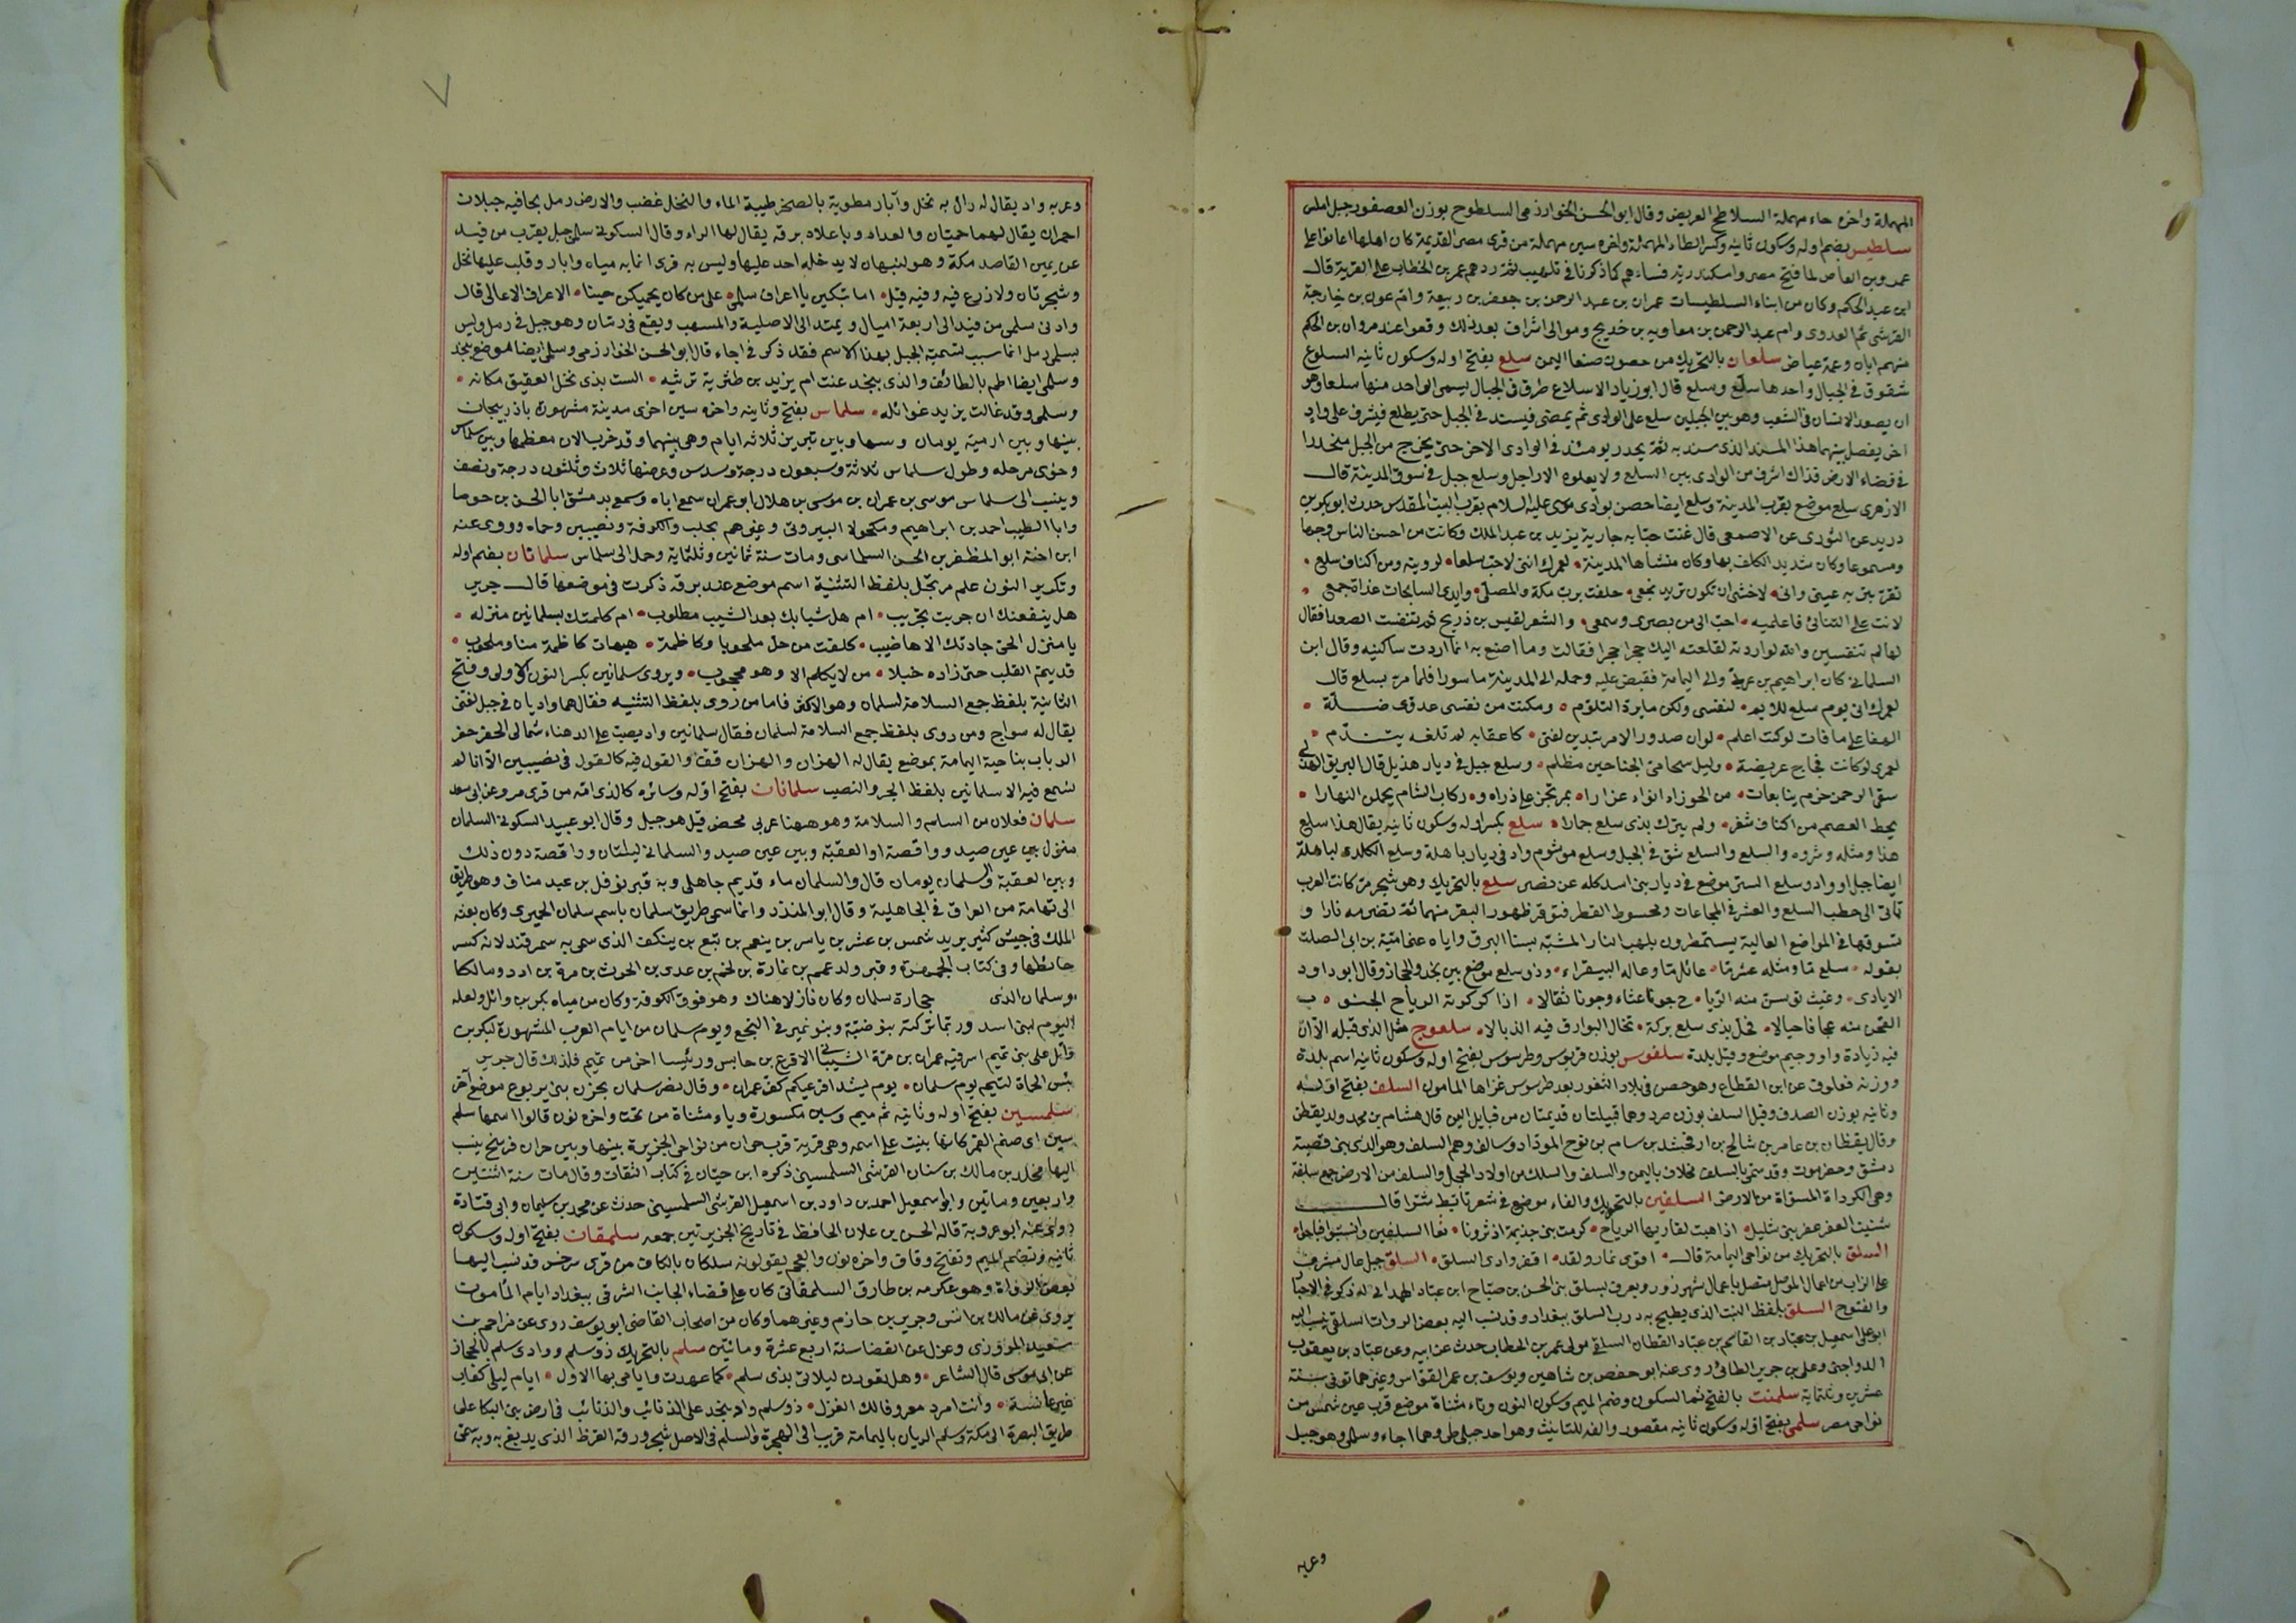 المهملة واخره حاء مهملة السلاطح العريض وقال ابو الحسن الخوارزمى السلطوح بوزن العصفور جبل املس
سلطيس بضم اوله وسكون ثانيه وكسر الطاء المهملة واخره سين مهملة من قرى مصر القديمة كان اهلها اعانوا على
عمرو بن العاص لما فتح مصر واسكندرية فسباهم كما ذكرنا فى بلهيب ثم ردهم عمر بن الخطاب على القرية قال
ابن عبد الحكم وكان من ابناء السلطيسات عمران بن عبد الرحمن بن جعفر بن ربيعة وام عون بن خارجة
القرشى ثم العدوى وام عبد الرحمن بن معاويه بن خديج وموالى اشراف بعد ذلك وقعوا عند مروان بن الحكم
منهم ابان وعمه عياض سلعان بالتحريك من حصون صنعا اليمن سلع بفتح اوله وسكون ثانيه السلوع
شقوق فى الجبال واحدها سلع وسلع قال ابو زياد الاسلاع طرق فى الجبال يسمى الواحد منها سلعا وهو
ان يصعد الانسان فى الشعب وهو بين الجبلين سلع على الوادى ثم يمضى فيسند فى الجبل حتى يطلع فيشرف على واد
اخر يفصل بينهما هذا المسند الذى سند به ثم يحدر يومئذ فى الوادى الاخر حتى يخرج من الجبل منحدرا
فى فضاء الارض فذاك اشرف من الوادى بين السلع ولا يعلوه الا راجل وسلع جبل فى سوق المدينة قال
الازهرى سلع موضع بقرب المدينة وسلع ايضا حصن بوادى موسى عليه السلام بقرب البيت المقدس حدث ابو بكر بن
دريد عن الثورى عن الاصمعى قال غنت حبابه جارية يزيد بن عبد الملك وكانت من احسن الناس وجها
ومسموعا وكان شديد الكلف بها وكان منشأها المدينة لعمرك اننى لاحب سلعا لرويته ومن اكناف سلع
تقر بقربه عينى وانى لاخشى ان تكون تريد فجعى حلفت برب مكة والمصلى وايدى السابحات غداة جمع
لانت على التنائى فاعلميه احب الى من بصرى وسمعى والشعر لقيس بن ذريح ثم تنفست الصعدا فقال
لها لم تنفسين والله لو اردته لقلعته اليك حجرا حجرا فقالت وما اصنع به انما اردت ساكنيه وقال ابن
السلمانى كان ابراهيم بن عربى والى اليمامة فقبض عليه وحمله الى المدينة ماسورا فلما مر بسلع قال
لعمرك انى يوم سلع للايم لنفسى ولكن ما يرد التلوم ومكنت من نفسى عدوى ضلة
الهفا على ما فات لو كنت اعلم لو ان صدور الامر تبدين لفتى كاعقابه لم تلفه يتندم
لعمرى لو كانت فجاج عريضة وليل سخامى الجناحين مظلم وسلع جبل فى ديار هذيل قال البريق الهذلى
سقى الرحمن حزم ينابعات من الجوزاء انواء غزارا بمرتجز على ذراه وركاب الشام يحملن النهارا
يحط العصم من اكناف شفر ولم يترك بذى سلع حمارا سلع بكسر اوله وسكون ثانيه يقال هذا سلع
هذا ومثله وشروه والسلع والسلع شق فى الجبل وسلع موشوم واد فى ديار باهلة وسلع الكلدى لباهلة
ايضا جبل او واد وسلع الستر موضع فى ديار بنى اسد كله عن نصر سلع بالتحريك وهو شجر مر كانت العرب
تاتى الى حطب السلع والعشر فى المجاعات وقحوط القطر فتوقر ظهور البقر منهما ثم تضرمه نارا و
تسوقها فى المواضع العالية يستمطرون بلهب النار المشبه بسنا البرق واياه عنى امية بن ابى الصلت
بقوله سلع ما ومثله عشر ما عائل ما وعالت البيقراء وذو سلع موضع بين نجد والحجاز وقال ابو داود
الايادى وغيث توسن منه الريا ح جونا عشاء وجونا ثقالا اذا كركرته الرياح الجنو ب
القحن منه عجافا حيالا فحل بذى سلع بركه تخال البوارق فيه الذبالا سلعوج مثل الذى قبله الا ان
فيه زيادة واو وجيم موضع وقيل بلدة سلغوس بوزن قربوس وطرسوس بفتح اوله وسكون ثانيه اسم بلدة
ووزنه فعلول عن ابن القطاع وهو حصن فى بلاد الثغور بعد طرسوس غزاها المامون السلف بفتح اوله
وثانيه بوزن الصدف وقيل السلف بوزن صرد وهما قبيلتان قديمتان من قبايل اليمن قال هشام بن محمد ولد يقطن
وقال يقظان بن عامر بن شالخ بن ارفخشد بن سام بن نوح الموذاد وسالف وهم السلف وهو الذى بنى قصبة
دمشق وحضرموت وقد سمى بالسلف مخلاف باليمن والسلف والسلك من اولاد الحجل والسلف من الارض جمع سلفة
وهى الكرداة المسواة من الارض السلفين بالتحريك والفاء موضع فى شعر تابط شرا قال
شنيت العقر عقر بنى شليل اذا هبت لقاريها الرياح كرهت بنى جذيمة اذ ثرونا قفا السلفين وانتسبوا فباحوا
السلق بالتحريك من نواحى اليمامة قال اقوى نمار ولقد اقفر وادى السلق السلق جبل عال مشرف
على الزاب من اعمال الموصل متصل باعمال شهرزور ويعرف بسلق بنى الحسن بن صباح ابن عباد الهمدانى له ذكر فى الاخبار
والفتوح السلق بلفظ النبت الذى يطبخ به درب السلق ببغداد وقد نسب اليه بعض الروات السلقى ينسب اليه
ابو على اسمعيل بن عباد بن القاسم بن عباد القطان السلقى مولى عمر بن الخطاب حدث عن ابيه وعن عباد بن يعقوب
الدواجنى وعلى بن جرير الطائى روى عنه ابو حفص بن شاهين ويوسف بن عمر القواس وغيرهما توفى سنة
عشرين وثلثماية سلمنت بالفتح ثم السكون وضم الميم وسكون النون وتاء مثناة موضع قرب عين شمس من
نواحى مصر سلمى بفتح اوله وسكون ثانيه مقصور والفه للتانيث وهو احد جبلى طى وهما اجاء وسلمى وهو جبل
وعربه
وعربه واد يقال له رال به نخل وآبار مطوية بالصخر طيبة الماء والنخل غضب والارض رمل بحافيه جبلان
احمران يقال لهما حميان والغداه وباعلاه برقه يقال لها الراء وقال السكونى سلمى جبل يقرب من فيد
عن يمين القاصد مكة وهو لنبهان لا يدخله احد عليها وليس به قرى انما به مياه وابار وقلب عليها نخل
وشجر تان ولا زرع فيه وفيه قيل اما تبكين يا اعراف سلمى على من كان يحميكن حينا الاعراف الاعالى قال
وادنى سلمى من فيد الى اربعة اميال ويمتد الى الاصلية والمسهب ويقع فى رمان وهو جبل فى رمل وليس
بسلمى رمل انما سبب تسميته الجبل بهذا الاسم فقد ذكر فى اجاء قال ابو الحسن الخوارزمى وسلمى ايضا موضع بنجد
وسلمى ايضا اطم بالطائف والذى بنجد عنت ام يزيد بن طثرية ترثيه الست بذى نخل العقيق مكانه
وسلمى وقد غالت يزيد غوائله سلماس بفتح وثانيه واخره سين اخرى مدينة مشهورة باذربيجان
بينها وبين ارمية يومان وسها وبين تبريز ثلاثه ايام وهى بينهما وقد خرب الان معظمها وبين سلماس
وخوى مرحله وطول سلماس ثلاثة وسبعون درجة وسدس وعرضها ثلاث وثلثون درجة ونصف
وينسب الى سلماس موسى بن عمران بن موسى بن هلال ابو عمران سمع اباه وسمع بدمشق ابا الحسن بن حوصا
وابا الطيب احمد بن ابراهيم ومكحولا البيروتى وغيرهم بحلب والكوفة ونصيبين وحماه وروى عنه
ابن اخته ابو المظفر بن الحسن السلماسى ومات سنة ثمانين وثلثماية وحمل الى سلماس سلمانان بضم اوله
وتكرير النون علم مرتجل بلفظ التثنية اسم موضع عند برقه ذكرت فى موضعها قال جرير
هل ينفعنك ان جربت تجريب ام هل شبابك بعد الشيب مطلوب ام كلمتك بسلمانين منزله
يا منزل الحى جادتك الاهاضيب كلفت من حل ملحوبا وكاظمة هيهات كاظمة منا وملحوب
قد يتم القلب حتى زاده خبلا من لا يكلم الا وهو محجوب ويروى سلمانين بكسر النون الاولى وفتح
الثانية بلفظ جمع السلامة لسلمان وهو الاكثر فاما من روى بلفظ التثنيه فقال هما واديان فى جبل لغنى
يقال له سواج ومن روى بلفظ جمع السلامة لسلمان فقال سلمانين واد يصب على الدهناء شمالى الحفر حفر
الرباب بناحية اليمامة بموضع يقال له الهزان والهزان قف والقول فيه كالقول فى نصيبين الا انا لم
نسمع فيه الا سلمانين بلفظ الجر والنصب سلمانان بفتح اوله وسائره كالذى امه من قرى مرو عن ابى سعد
سلمان فعلان من السلم والسلامة وهو ههنا عربى محض قيل هو جبل وقال ابو عبيد السكونى السلمان
منزل بين عين صيد وواقصة او العقبه وبين عين صيد والسلمانى ليلتان وواقصة دون ذلك
وبين العقبة والسلمان يومان قال والسلمان ماء قديم جاهلى وبه قبر نوفل بن عبد مناف وهو طريق
الى تهامة من العراق فى الجاهلية وقال ابو المنذر وانما سمى طريق سلمان باسم سلمان الحميرى وكان بعثه
الملك فى جيش كثير يريد شمس بن عشر بن ياسر بن ينعم بن تبع بن ينكف الذى سمى به سمرقند لانه كسر
حائطها وفى كتاب الجمهرة وقبر ولد عمم بن نمارة بن لخم بن عدى بن الحرث بن مرة بن ادد ومالكا
وسلمان الذى حجارة سلمان وكان نازلا هناك وهو فوق الكوفة وكان من مياه بكر بن وائل ولعله
اليوم لبنى اسد وربما تركته بنو ضبة وبنو نمير فى النجع ويوم سلمان من ايام العرب المشهورة لبكر بن
وائل على بنى تميم اسر فيه عمران بن مرة الشيبانى الاقرع بن حابس ورئيسا اخر من تميم فلذلك قال جرير
بئس الحماة لتيم يوم سلمان يوم يشد اقرعيكم كف عمران وقال نصر سلمان بحزن بنى يربوع موضع آخر
سلمسين بفتح اوله وثانيه ثم ميم وسين مكسورة وياء مثناة من تحت واخره نون قالوا اسمها سلم
سين اى صنم القمر كانها بنيت على اسمه وهى قرية قرب حران من نواحى الجزيرة بينها وبين حران فرسخ ينسب
اليها مخلد بن مالك بن سنان القرشى السلمسينى ذكره ابن حبان فى كتاب الثقات وقال مات سنة اثنتين
واربعين وماتين وابو اسمعيل احمد بن داود بن اسمعيل القرشى السلمسينى حدث عن محمد بن سليمان وابى قتادة
روى عنه ابو عروبة قاله الحسن بن علان الحافظ فى تاريخ الجزيرتين جمعه سلمقان بفتح اوله وسكون
ثانيه وتضم الميم وتفتح وقاف واخره نون والعجم يقولونه سلمكان بالكاف من قرى سرخس قد نسب اليها
بعض الرواة وهو عكرمه بن طارق السلمقانى كان على قضاء الجانب الشرقى ببغداد ايام المأمون
يروى عن مالك بن انس وجرير بن حازم وغيرهما وكان من اصحاب القاضى ابو يوسف روى عن مزاحم بن
سعيد المروزى وعزل عن القضا سنة اربع عشرة ومائتين سلم بالتحريك ذو سلم ووادى سلم بالحجاز
عن ابى موسى قال الشاعر وهل تعودن ليلاتى بذى سلم كما عهدت وايامى بها الاول ايام ليلى كعاب
غير عانسة وانت امرد معروفا لك الغزل ذو سلم واد بنجد على الذنائب والذنائب فى ارض بنى البكا على
طريق البصرة الى مكة وسلم الريان باليمامة قريب الى الهجرة والسلم فى الاصل شجر ورقه القرظ الذى يدبغ به وبه سمى